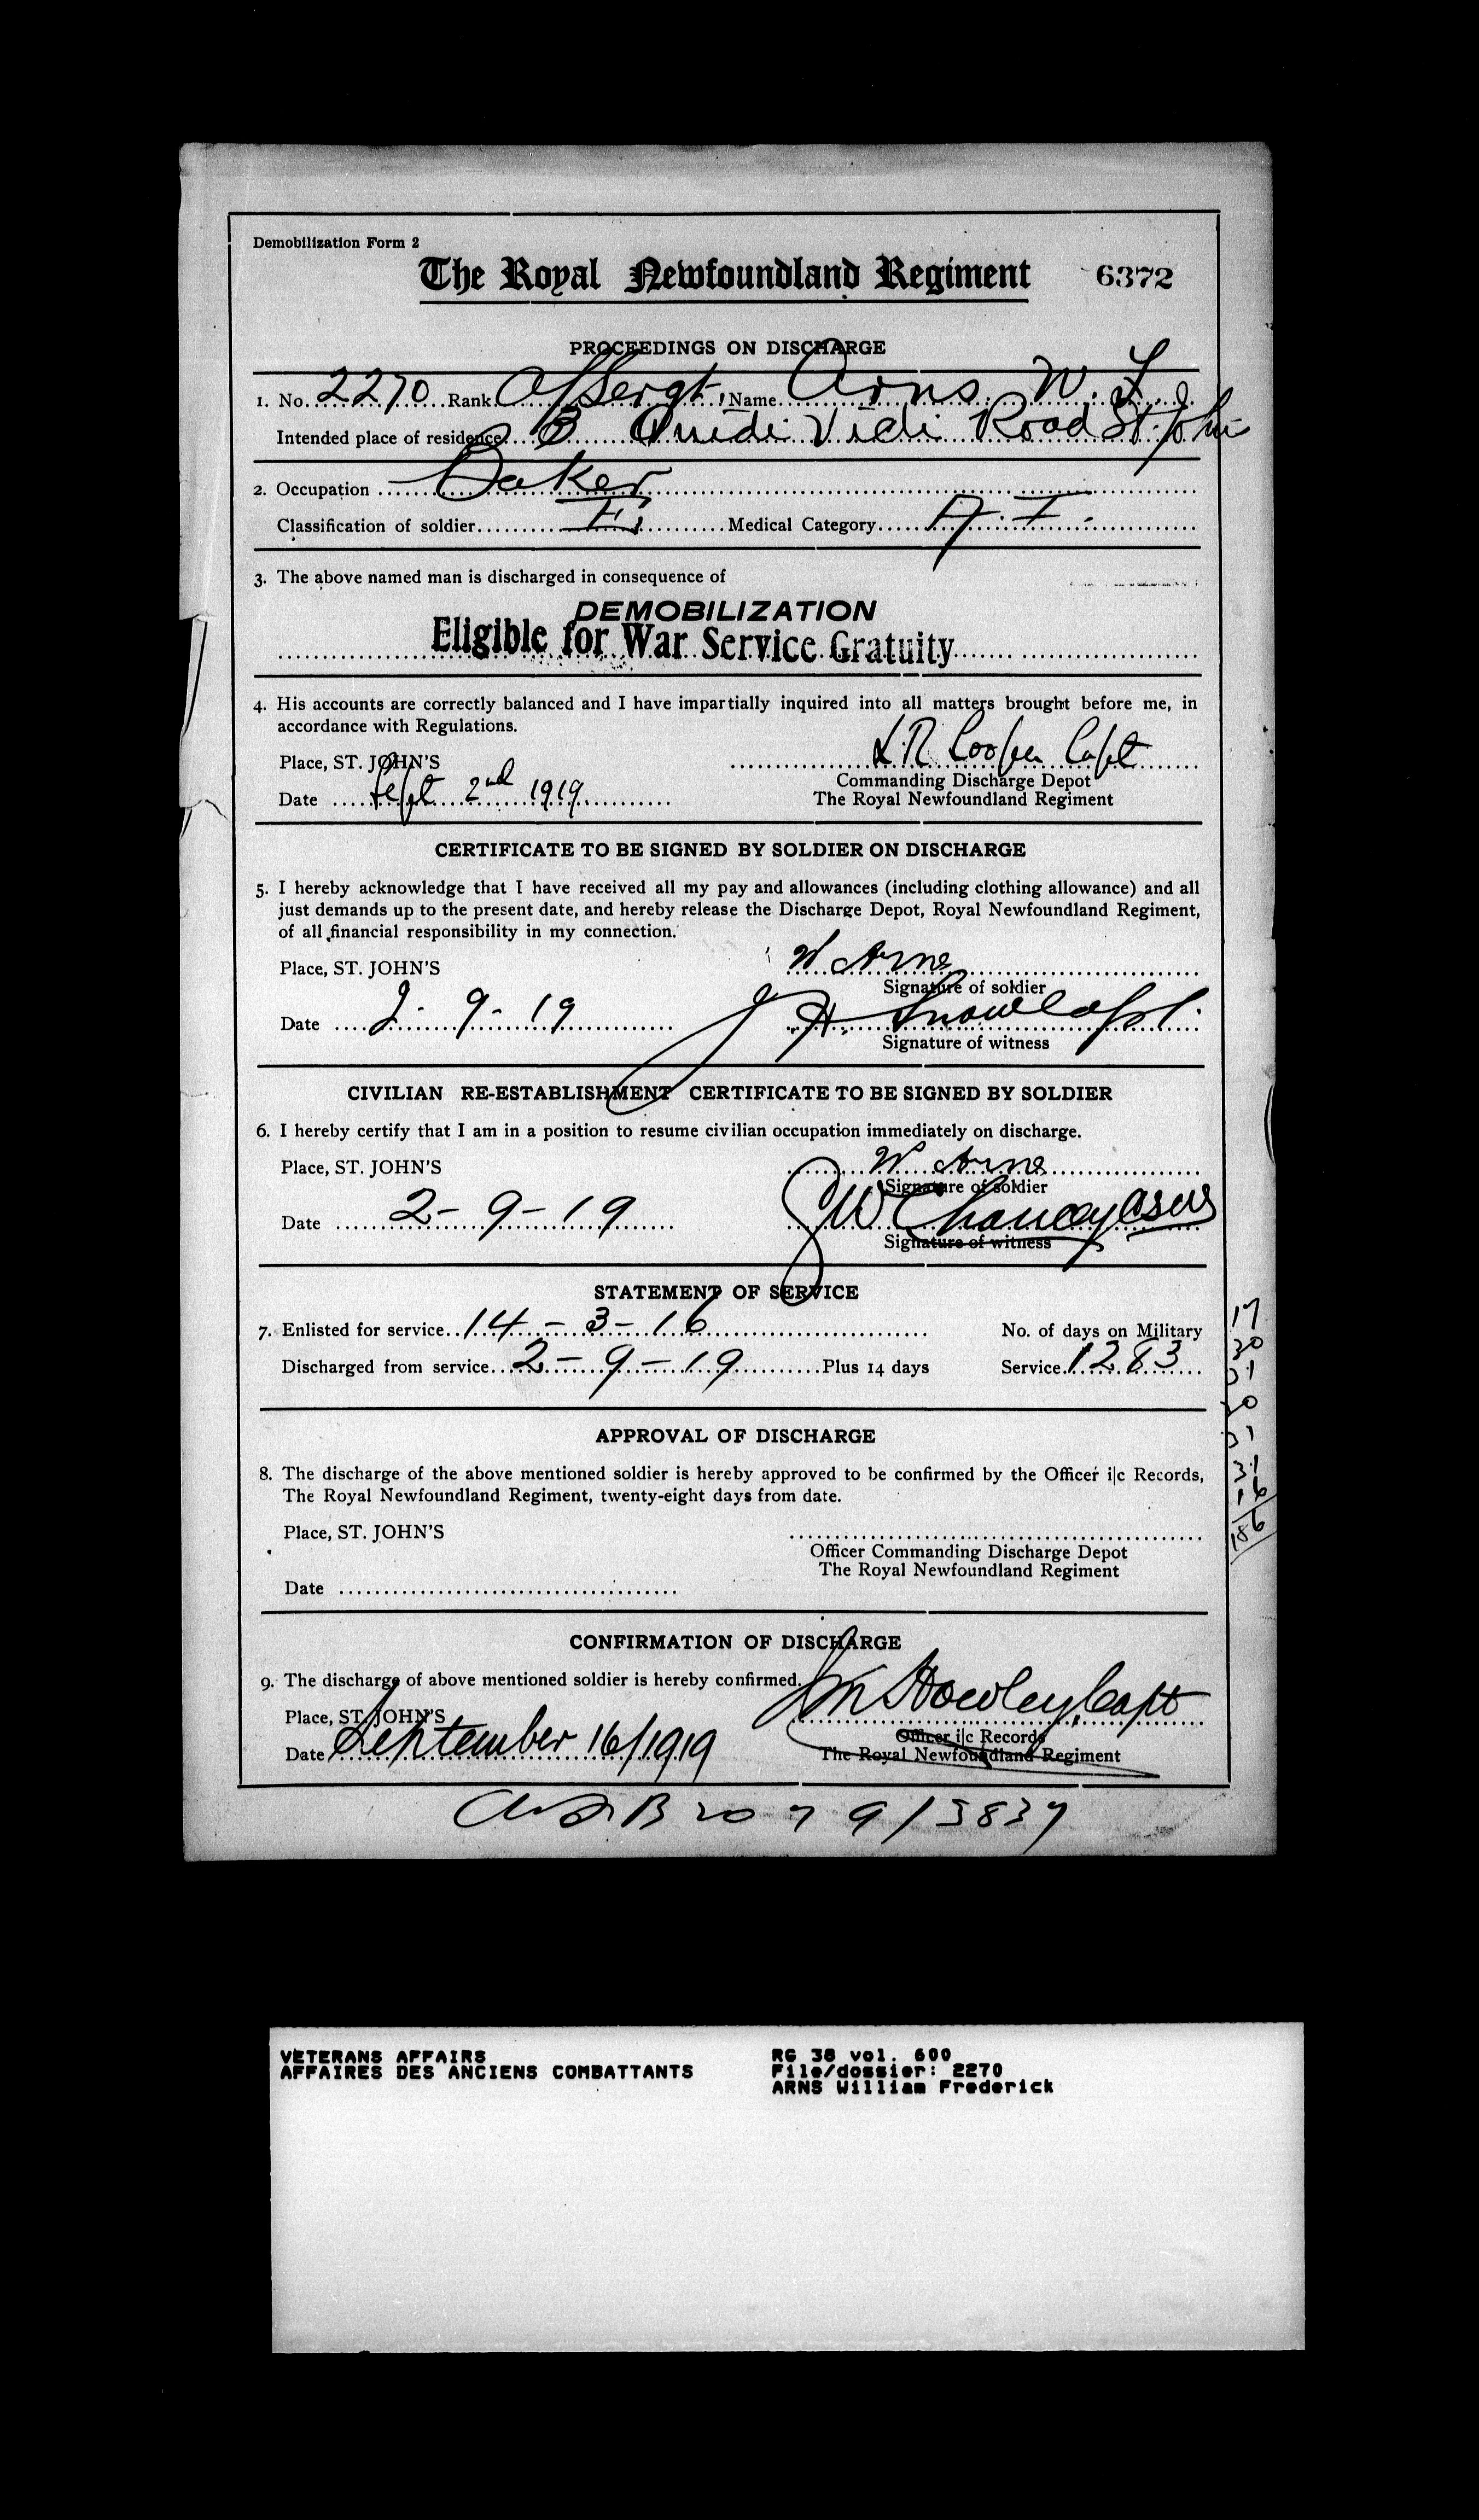 Demobilization Form 2
The Royal Newfoundland Regiment 6372
PROCEEDINGS ON DISCHARGE
1. No. 2270 Rank A/Sergt. Name Arns W. F.
Intended place of residence 3 Quidi Vidi Road St. John's
2. Occupation Baker
Classification of soldier E Medical Category A. I.
3. The above named man is discharged in consequence of
DEMOBILIZATION
Eligible for War Service Gratuity
4. His accounts are correctly balanced and I have impartially inquired into all matters brought before me, in
accordance with Regulations.
L.R. Cooper Capt
Place, ST. JOHN'S
Commanding Discharge Depot
Date Sept 2nd 1919 The Royal Newfoundland Regiment
CERTIFICATE TO BE SIGNED BY SOLDIER ON DISCHARGE
5. I hereby acknowledge that I have received all my pay and allowances (including clothing allowance) and all
just demands up to the present date, and hereby release the Discharge Depot, Royal Newfoundland Regiment,
of all financial responsibility in my connection.
Place, ST. JOHN'S W Arns
Signature of soldier
Date 2-9-19 Capt.
Signature of witness
CIVILIAN RE-ESTABLISHMENT CERTIFICATE TO BE SIGNED BY SOLDIER
6. I hereby certify that I am in a position to resume civilian occupation immediately on discharge.
Place, ST. JOHN'S W Arns
Signature of soldier
Date 2-9-19 Chancey
Signature of witness
STATEMENT OF SERVICE
7. Enlisted for service 14-3-16 No. of days on Military
Discharged from service 2-9-19 Plus 14 days Service 1283
17
30
31
30
31
31
16
186
APPROVAL OF DISCHARGE
8. The discharge of the above mentioned soldier is hereby approved to be confirmed by the Officer i|c Records,
The Royal Newfoundland Regiment, twenty-eight days from date.
Place, ST. JOHN'S
Officer Commanding Discharge Depot
The Royal Newfoundland Regiment
Date
CONFIRMATION OF DISCHARGE
9. The discharge of above mentioned soldier is hereby confirmed.
Howley, Capt
Place, ST. JOHN'S
Officer i|c Records
Date September 16/1919 The Royal Newfoundland Regiment
2079/3837
VETERANS AFFAIRS RG 38 vol. 600
AFFAIRES DES ANCIENS COMBATTANTS File/dossier: 2270
ARNS William Frederick